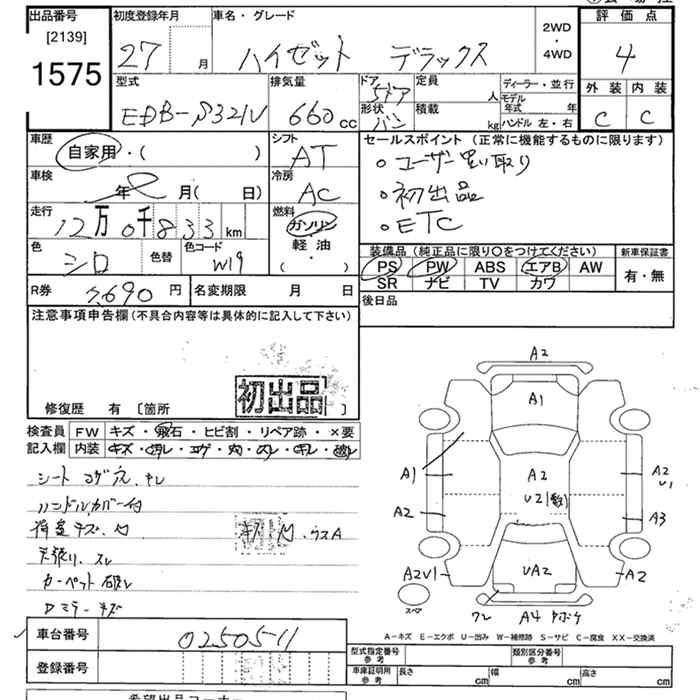 出品番号
[2139]
1575
初度登録年月
27 月
車名・グレード
ハイゼット デラックス
2WD
・
4WD
評価点
4
外装 内装
C C
型式
EDB-S321V
排気量
660 cc
ドア
形状
5ドア
バン
定員
人
積載
kg
ディーラー・並行
モデル
年式 年
ハンドル 左・右
車歴
自家用・( )
シフト
AT
車検
年 月( 日)
冷房
AC
走行
12万0千833km
燃料
ガソリン
軽油
( ・ )
色
シロ
色替
色コード
W19
セールスポイント(正常に機能するものに限ります)
○ユーザー買い取り
○初出品
○ETC
装備品(純正品に限り○をつけてください)
PS PW ABS エアB AW
SR ナビ TV カワ
新車保証書
有・無
R券
7,690 円
名変期限 月 日
後日品
注意事項申告欄(不具合内容等は具体的に記入して下さい)
初出品
修復歴 有 〔箇所 〕
検査員
記入欄
FW キズ・飛石・ヒビ割・リペア跡・×要
内装 キズ・汚レ・コゲ・穴・スレ・キレ・破レ
シート コゲ穴、キレ
ハンドルカバー付
荷室キズ、凹
キズ 凹、ウスA
天張り、スレ
カーペット破レ
Dミラーキズ
A2
A1
A1
A2
U2(数)
A2
U1
A2
A3
A2U1
UA2
A2
スペア
ワレ A4
A-キズ E-エクボ U-凹み W-補修跡 S-サビ C-腐食 XX-交換済
車台番号
0250511
登録番号
型式指定番号
参考
類別区分番号
参考
車庫証明用
参考
長さ cm
幅 cm
高さ cm
希望出品コーナー